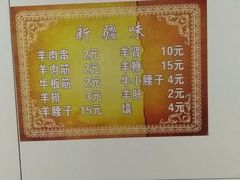 新疆味
羊肉串 2元 羊肾 10元
羊肉筋 2元 羊鞭 15元
牛板筋 2元 牛小腰子 4元
羊排 3元 羊肝 2元
羊腰子 15元 馕 4元